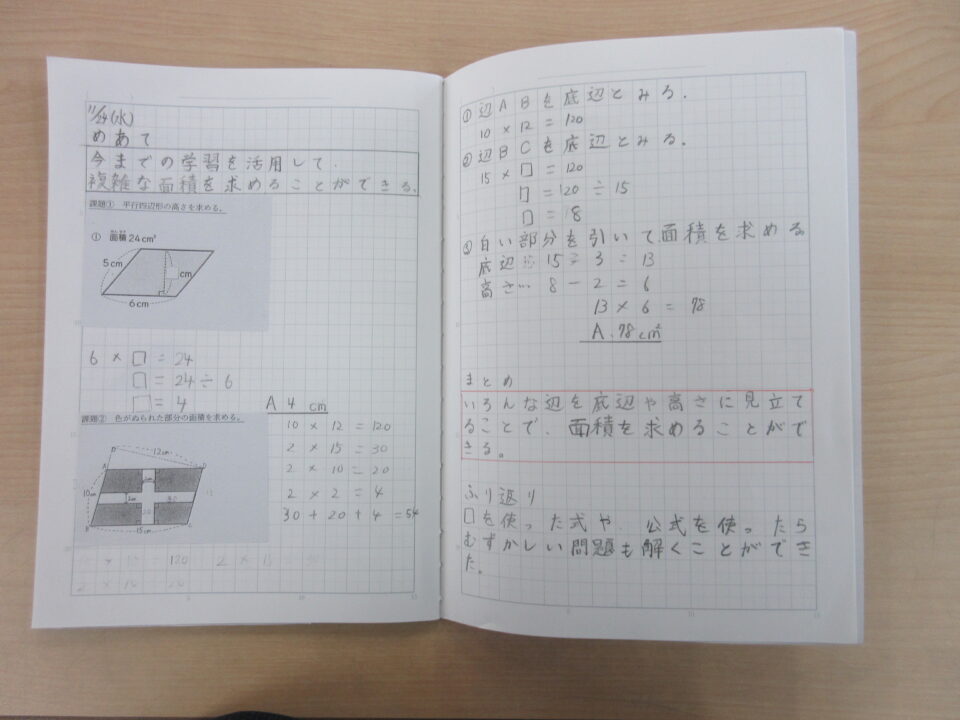 11/24(水)
めあて
今までの学習を活用して、
複雑な面積を求めることができる。
課題① 平行四辺形の高さを求める。
① 面積24cm²
5cm
cm
6cm
6×□=24
□=24÷6
□=4
A 4cm
課題② 色がぬられた部分の面積を求める。
12cm
A
D
10cm
2cm
2cm
B
15cm
C
10×12=120
2×15=30
2×10=20
2×2=4
30+20+4=54
①辺ABを底辺とみる。
10×12=120
②辺BCを底辺とみる。
15×□=120
□=120÷15
□=8
③白い部分を引いて面積を求める。
底辺…15-2=13
高さ…8-2=6
13×6=78
A.78cm²
まとめ
いろんな辺を底辺や高さに見立て
ることで、面積を求めることがで
きる。
ふり返り
□を使った式や、公式を使ったら
むずかしい問題も解くことができ
た。